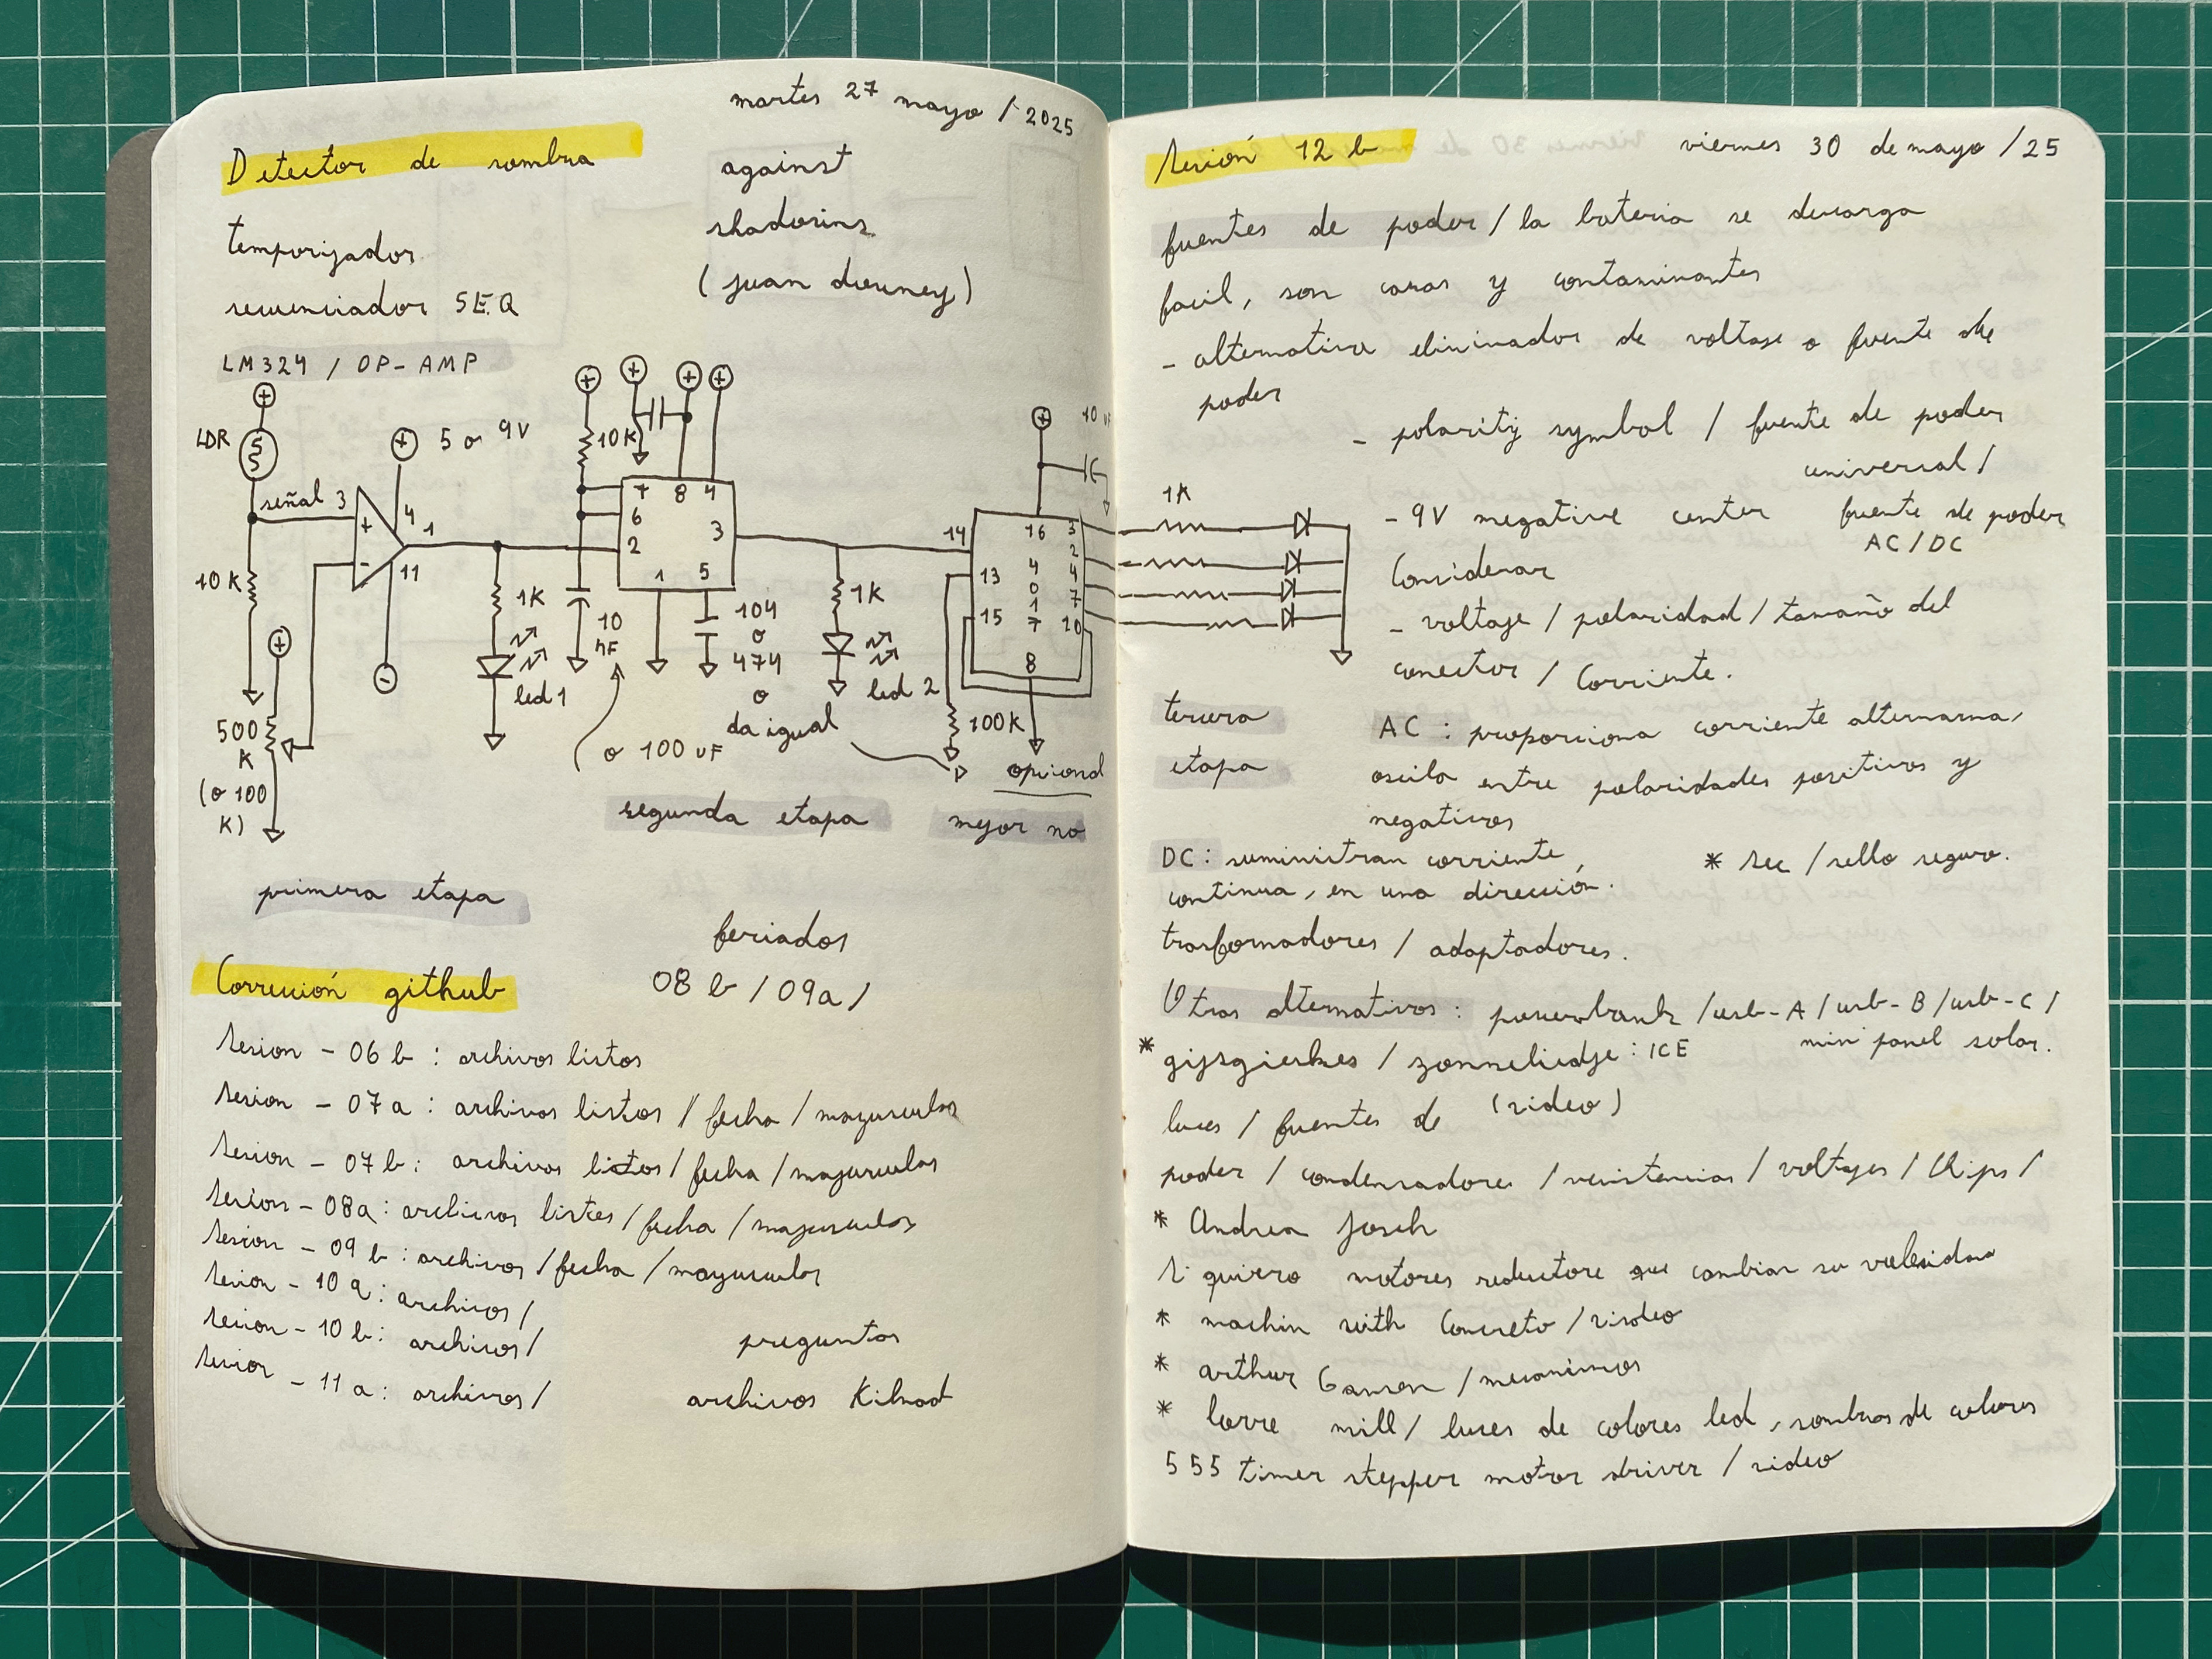 martes 27 mayo / 2025
Detector de sombra
against
shadowing
(juan downey)
temporizador
secuenciador SEQ
LM324 / OP-AMP
LDR
5 o 9V
señal 3
+
-
4
1
11
10K
500
K
(o 100
K)
1K
led 1
10K
7 8 4
6
2
3
1 5
10
o 100 uF
104
o
474
o
da igual
1K
led 2
10 uF
14
13
15
16 3
2
4 4
0 7
1
7 10
8
100K
opcional
segunda etapa
mejor no
primera etapa
feriados
08 b / 09a /
Corrección github
sesion - 06 b : archivos listos
sesion - 07 a : archivos listos / fecha / mayusculas
sesion - 07 b : archivos listos / fecha / mayusculas
sesion - 08a : archivos listos / fecha / mayusculas
sesion - 09 b : archivos / fecha / mayusculas
sesion - 10 a : archivos /
sesion - 10 b : archivos /
sesion - 11 a : archivos /
preguntas
archivos Kiknad
Sesión 12 b
viernes 30 de mayo / 25
fuentes de poder / la bateria se descarga
facil, son caras y contaminantes
- alternativa eliminador de voltaje o fuente de
poder
- polarity symbol / fuente de poder
universal /
1K
- 9V negative center fuente de poder
AC / DC
Considerar
- voltaje / polaridad / tamaño del
conector / Corriente.
tercera
etapa
AC : proporciona corriente alternarna,
oscila entre polaridades positivas y
negativas
DC : suministran corriente
continua, en una dirección.
* sec / sello seguro.
trasformadores / adaptadores.
Otras alternativas : powerbank / usb-A / usb-B / usb-C /
mini panel solar.
* gijsgieskes / zonneliedje : ICE
(video)
luces / fuentes de
poder / condensadores / resistencias / voltajes / Chips /
* Andrea Josch
si quiero motores reductore que cambian su velocidad
* machin with Concreto / video
* arthur Ganson / mecanismos
* mill / luces de colores led, sombras de colores
555 timer stepper motor driver / video